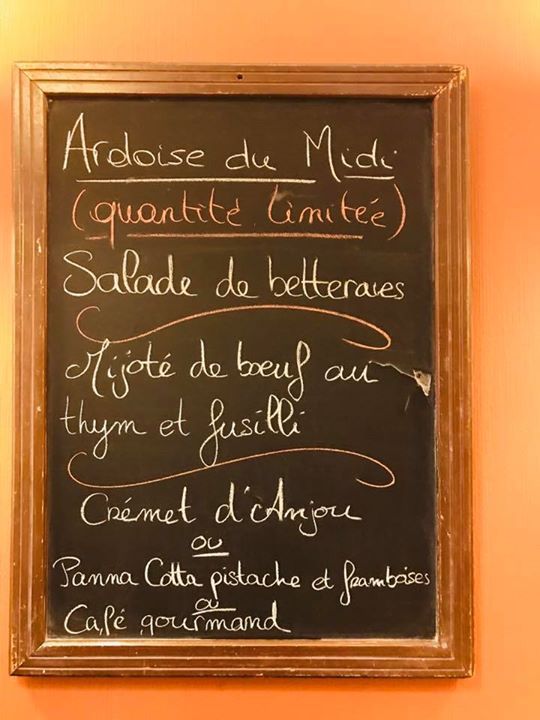 Ardoise du Midi
(quantité limitée)
Salade de betteraves
Mijoté de bœuf au
thym et fusilli
Crémet d'Anjou
ou
Panna Cotta pistache et framboises
ou
Café gourmand